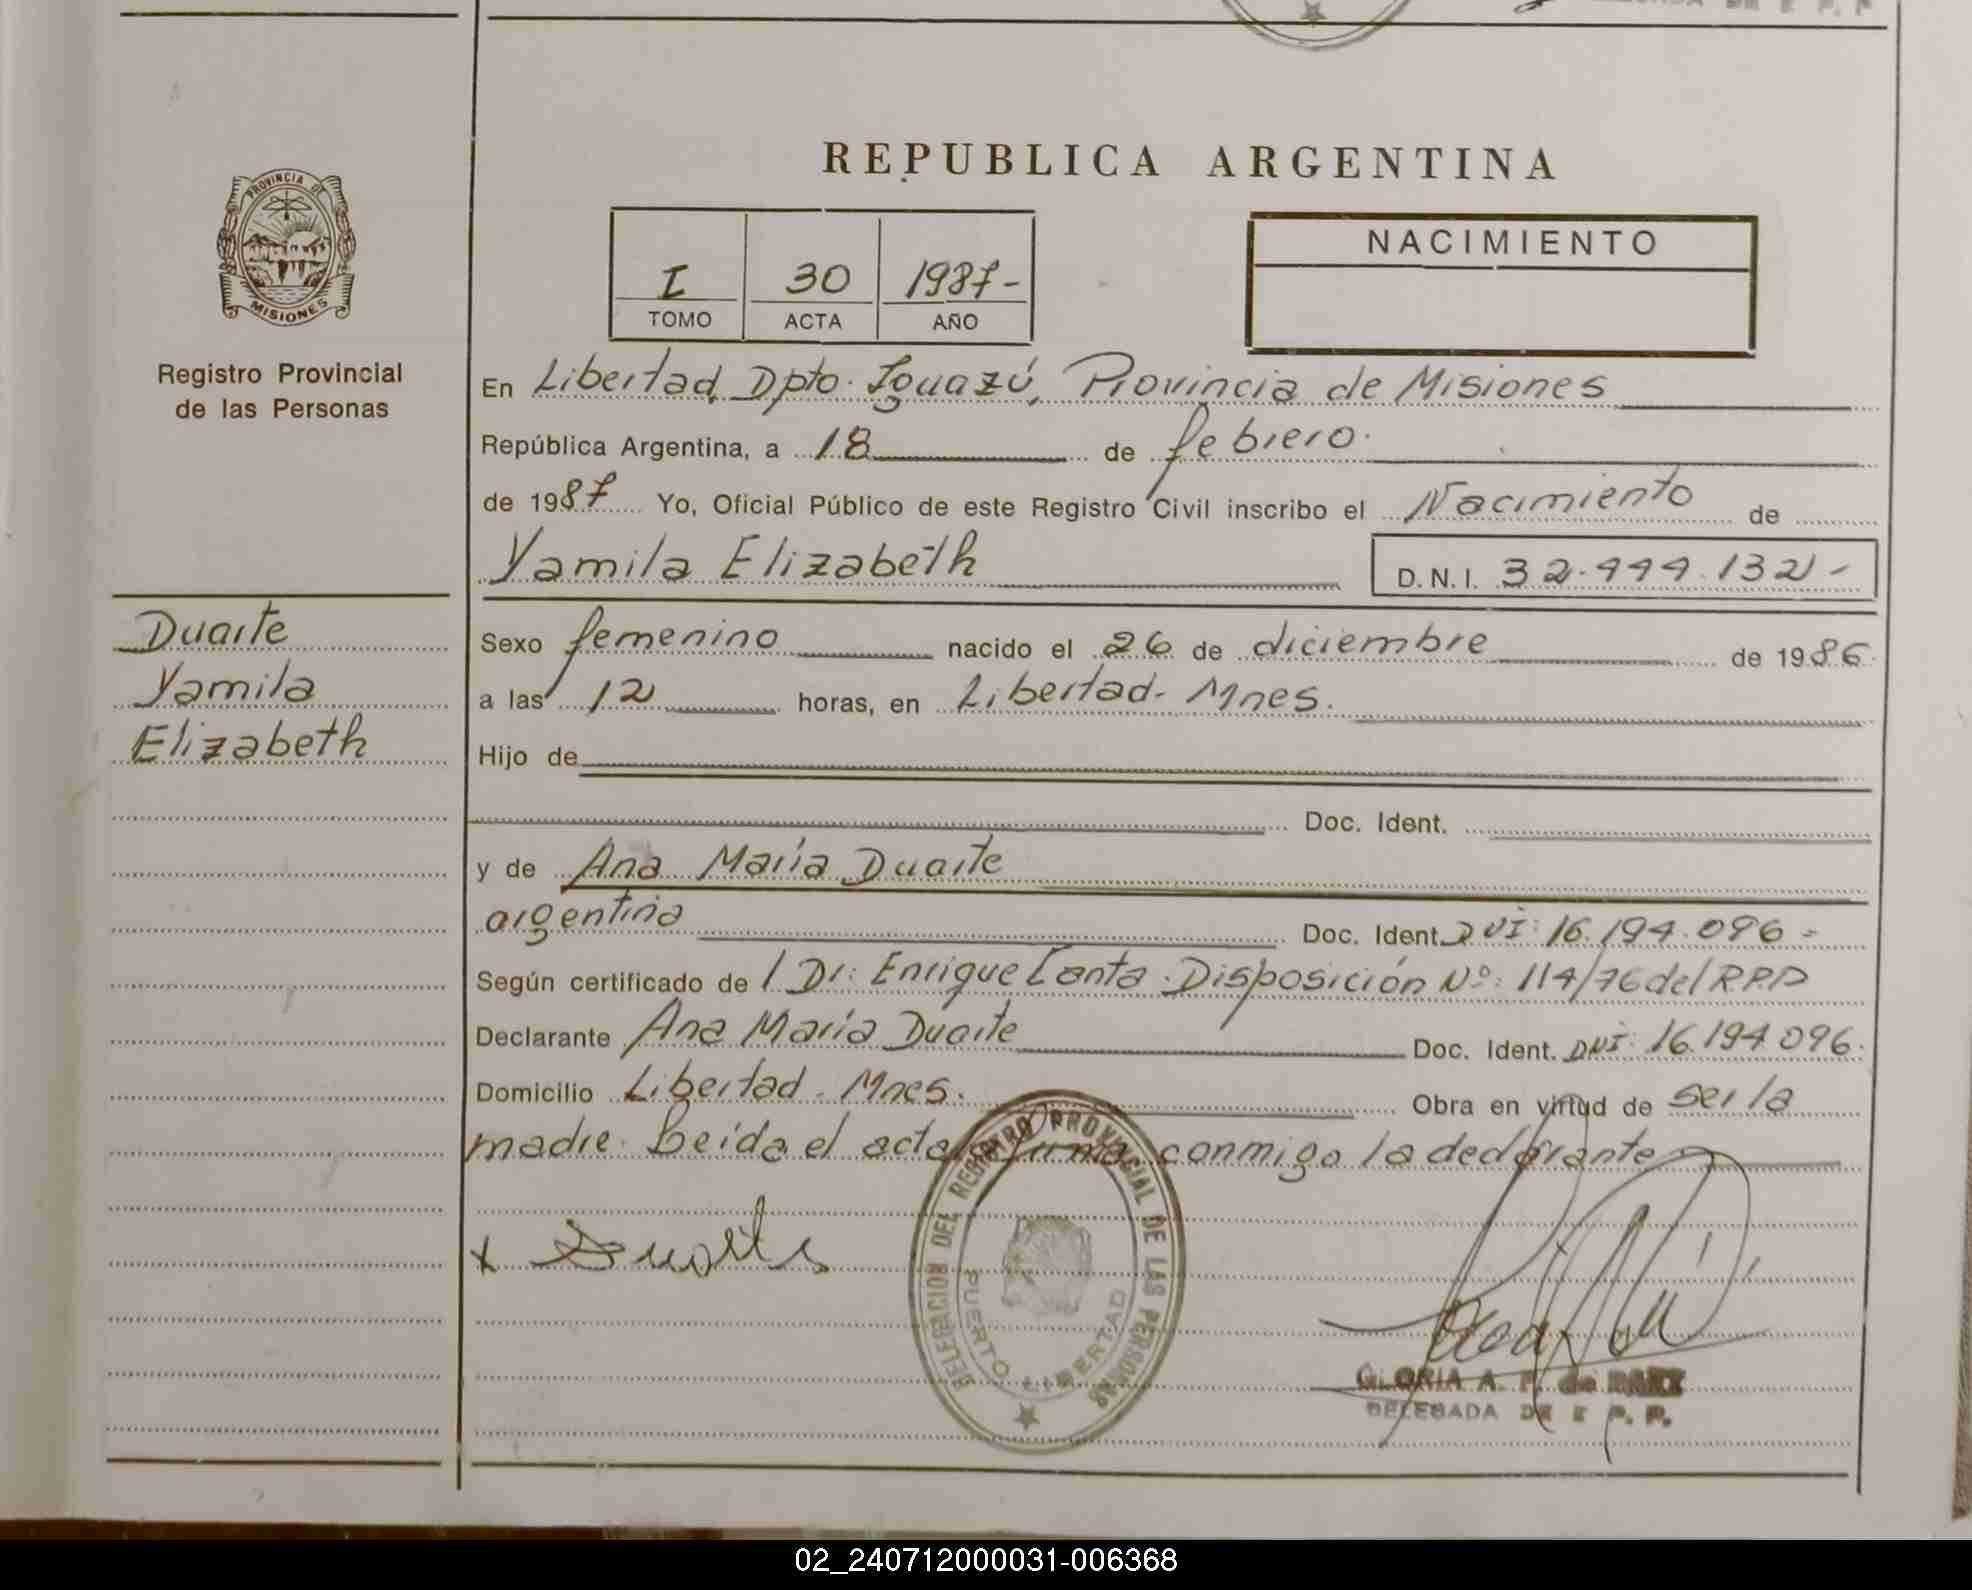 REPUBLICA ARGENTINA
PROVINCIA DE
MISIONES
Registro Provincial
de las Personas
I 30 1987-
TOMO ACTA AÑO
NACIMIENTO
En Libertad, Dpto. Iguazú, Provincia de Misiones
República Argentina, a 18 de febrero.
de 1987 Yo, Oficial Público de este Registro Civil inscribo el Nacimiento de
Yamila Elizabeth D.N.I. 32.999.132-
Duarte
Yamila
Elizabeth
Sexo femenino nacido el 26 de diciembre de 1986.
a las 12 horas, en Libertad- Mnes.
Hijo de
Doc. Ident.
y de Ana María Duarte
argentina Doc. Ident. DNI: 16.194.096-
Según certificado de l Dr: Enrique Disposición Nº: 114/76 del R.P.P
Declarante Ana María Duarte Doc. Ident. DNI: 16.194.096.
Domicilio Libertad. Mnes. Obra en virtud de ser la
madre. Leída el acta, firma conmigo la declarante
x Duarte
DELEGACION DEL REGISTRO PROVINCIAL DE LAS PERSONAS
PUERTO LIBERTAD
GLORIA A. F. de
DELEGADA DE R. P. P.
02_240712000031-006368